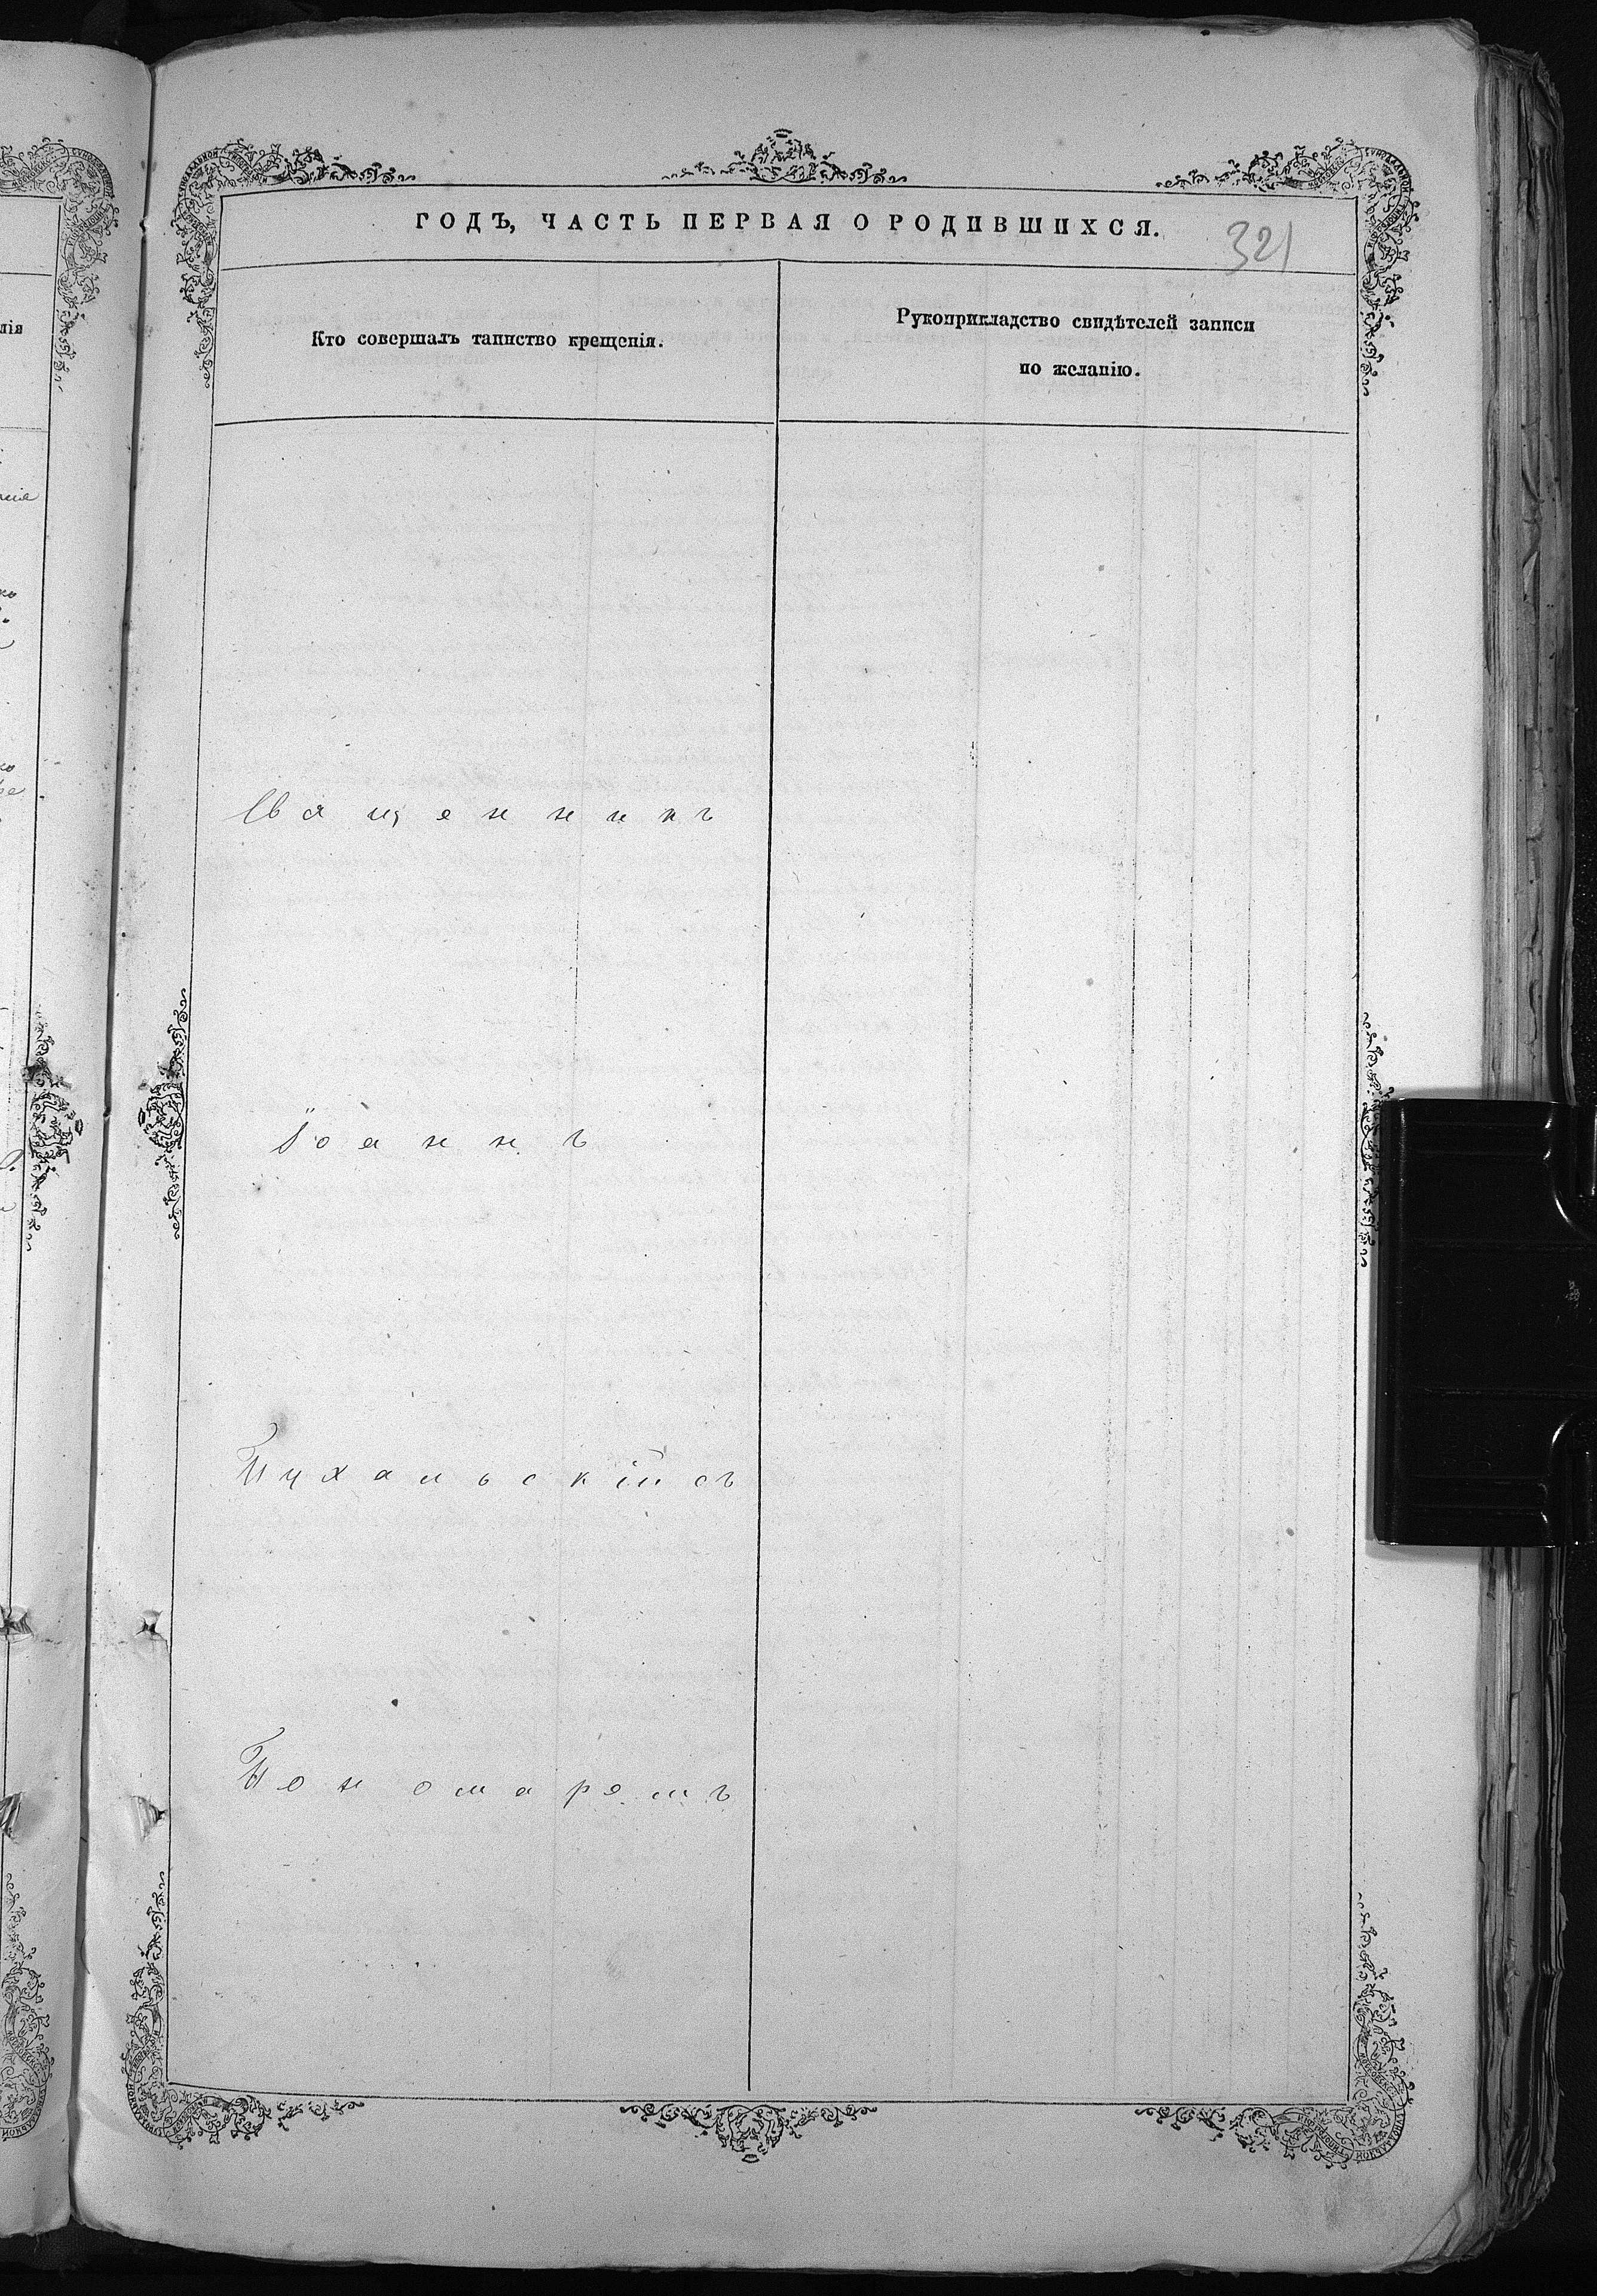 ГОДЪ, ЧАСТЬ ПЕРВАЯ О РОДИВШИХСЯ.
321
Кто совершалъ таинство крещенія.
Рукоприкладство свидѣтелей записи
по желанію.
Священникъ
Іоаннъ
Пухальскій съ
Пономаремъ